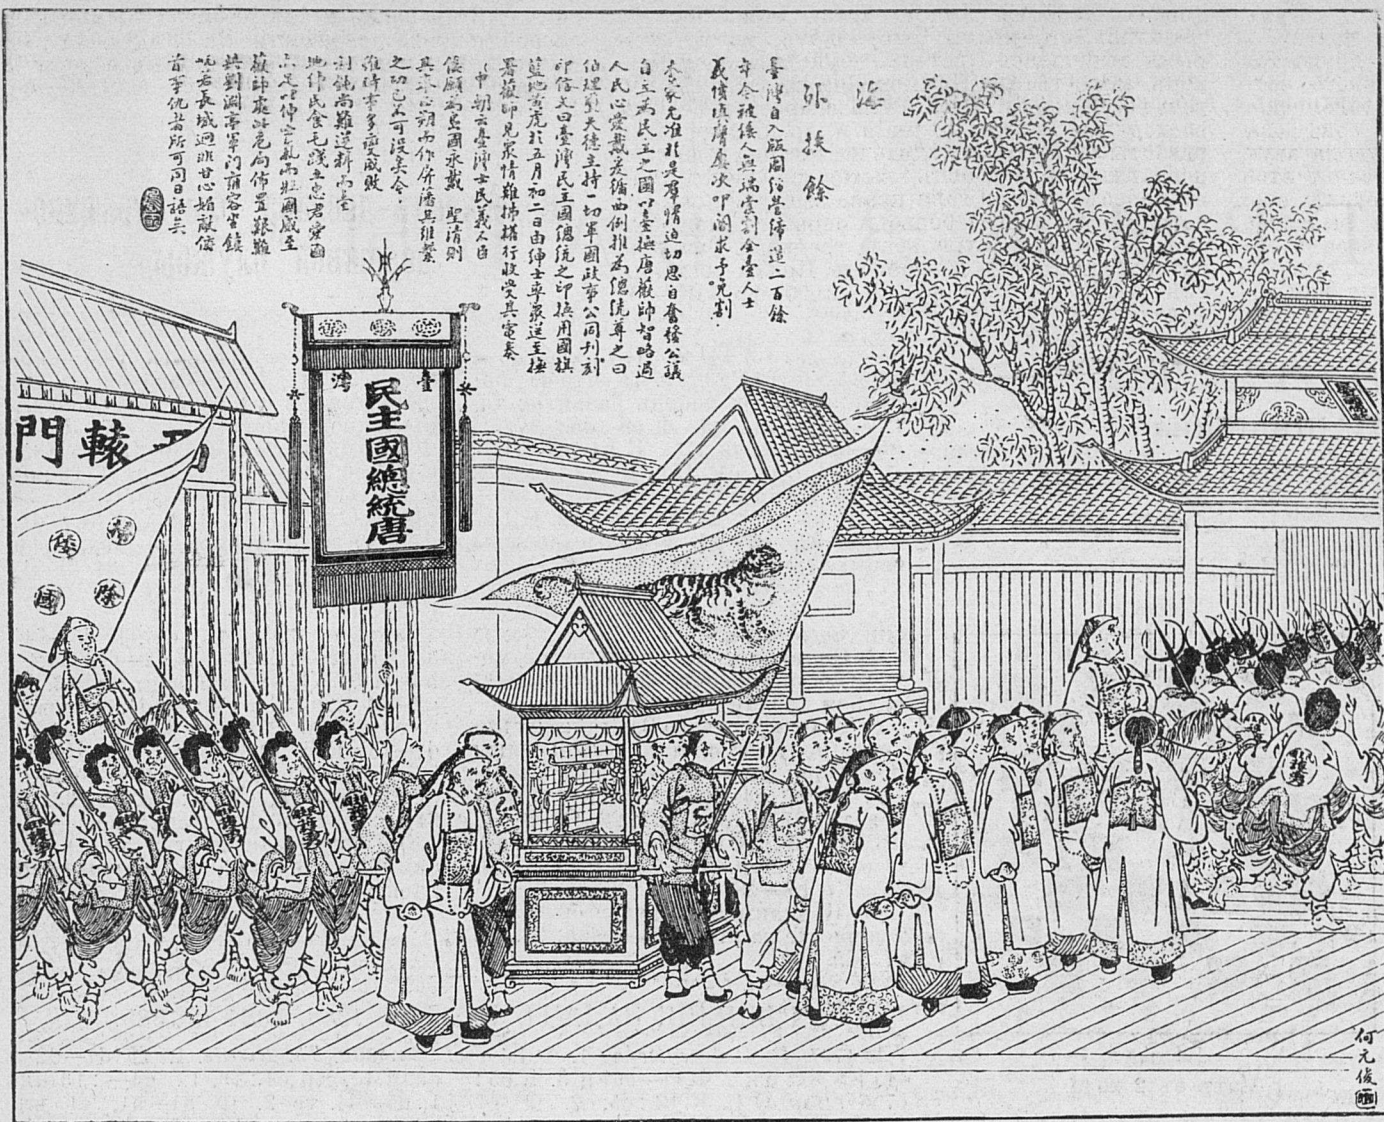 海外扶餘
臺灣自入版圖 營締造二百餘
年今被倭人無端索割全臺人士
義憤填膺屢次叩閽求予免割
未蒙允准於是羣情迫切思自奮後公議
自立為民主之國以臺撫唐薇帥智略過
人民心愛戴爰循西例推為總統尊之曰
伯理璽天德主持一切軍國政事公同刊刻
印信文曰臺灣民主國總統之印換用國旗
藍地黃虎於五月初二日由紳士率衆送至撫
署薇帥見衆情難拂權行收受具電奏
中朝云臺灣士民義不臣
倭願為島國永戴 聖清則
其奉正朔而作屏藩其維繫
之功已不可沒矣今
雖時事多變成敗
利鈍尚難逆料而臺
地紳民食毛踐土忠君愛國
亦足以伸 而壯國威至
薇帥處此危局佈置艱難
與劉淵亭軍門雍容坐鎮
屹若長城迥非甘心媚敵
首事仇者所可同日語矣
臺灣
民主國總統唐
轅門
掃除倭國
何元俊